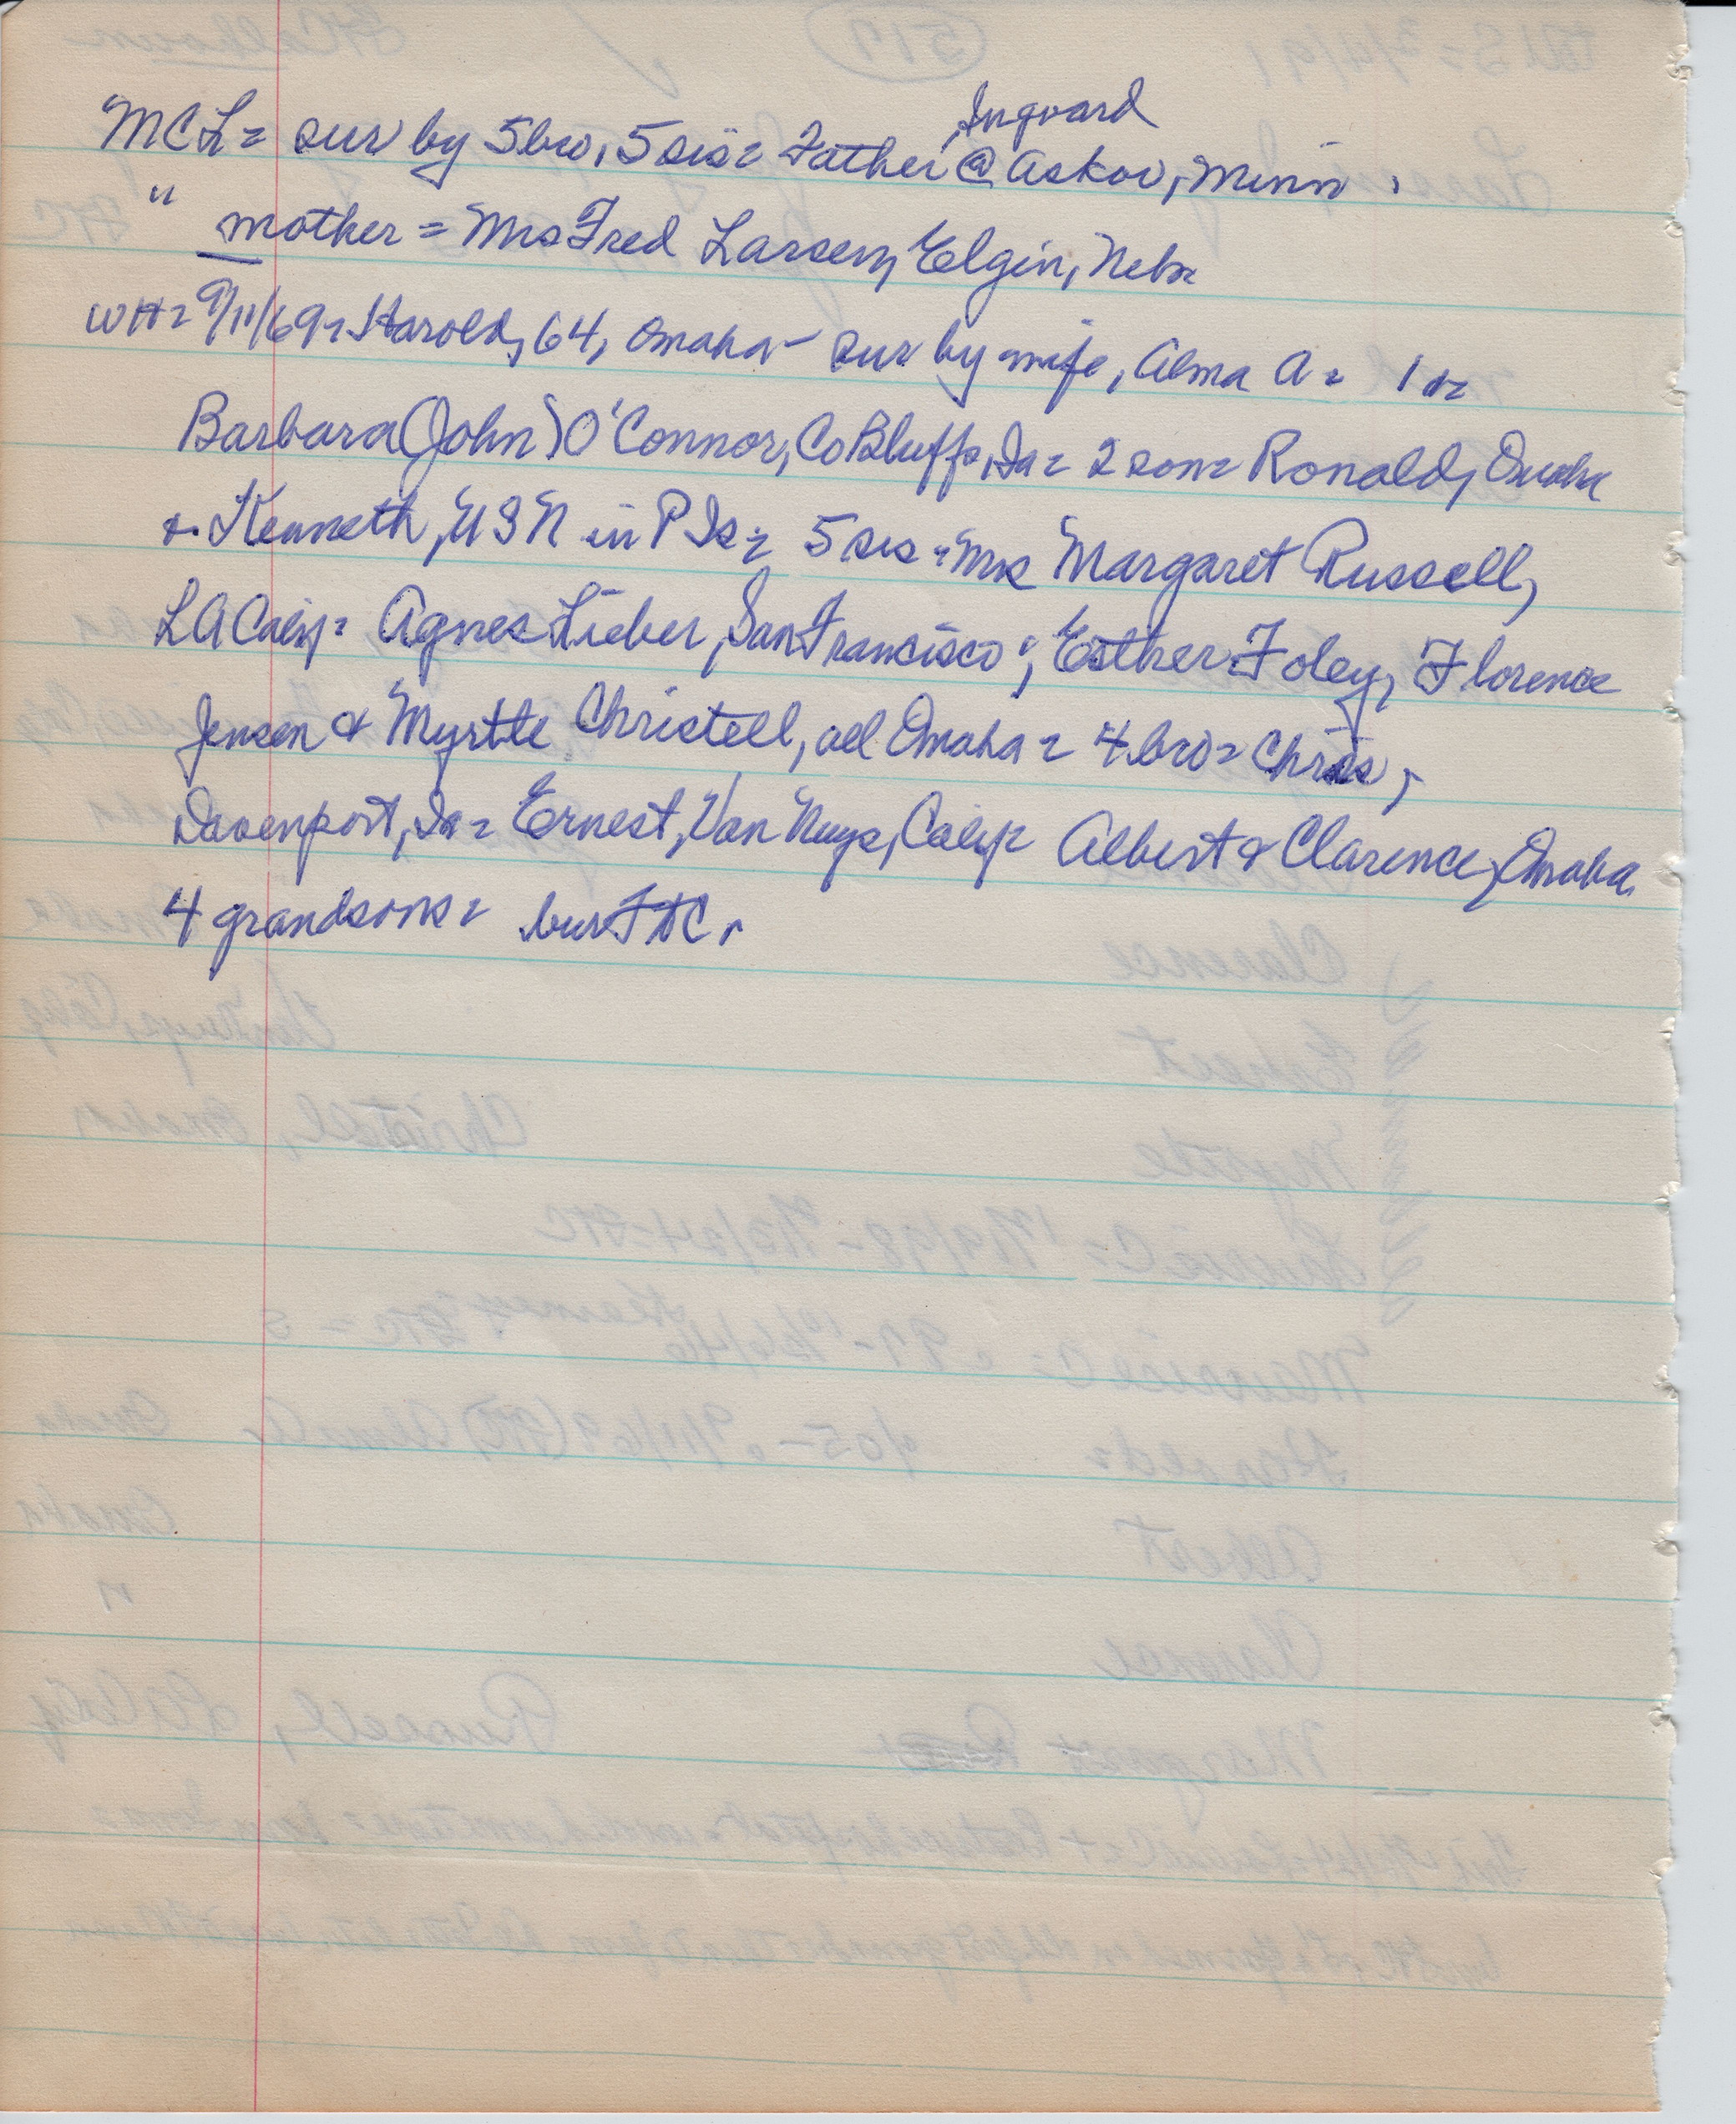 Ingvard
MCL= sur by 5 bro, 5 sis= Father @ Askov, Minn.
" mother = Mrs Fred Larsen, Elgin, Nebr
WH= 9/11/69= Harold, 64, Omaha - sur by wife, Alma A= 1 d=
Barbara (John) O'Connor, Co Bluffs, Ia= 2 son= Ronald, Omaha
& Kenneth, USN in P Is= 5 sis= Mrs Margaret Russell,
LA Calif= Agnes Lieber, San Francisco; Esther Foley, Florence
Jensen & Myrtle Christell, all Omaha= 4 bro= Chris,
Davenport, Ia= Ernest, Van Nuys, Calif= Albert & Clarence, Omaha
4 grandsons= bur FHC.